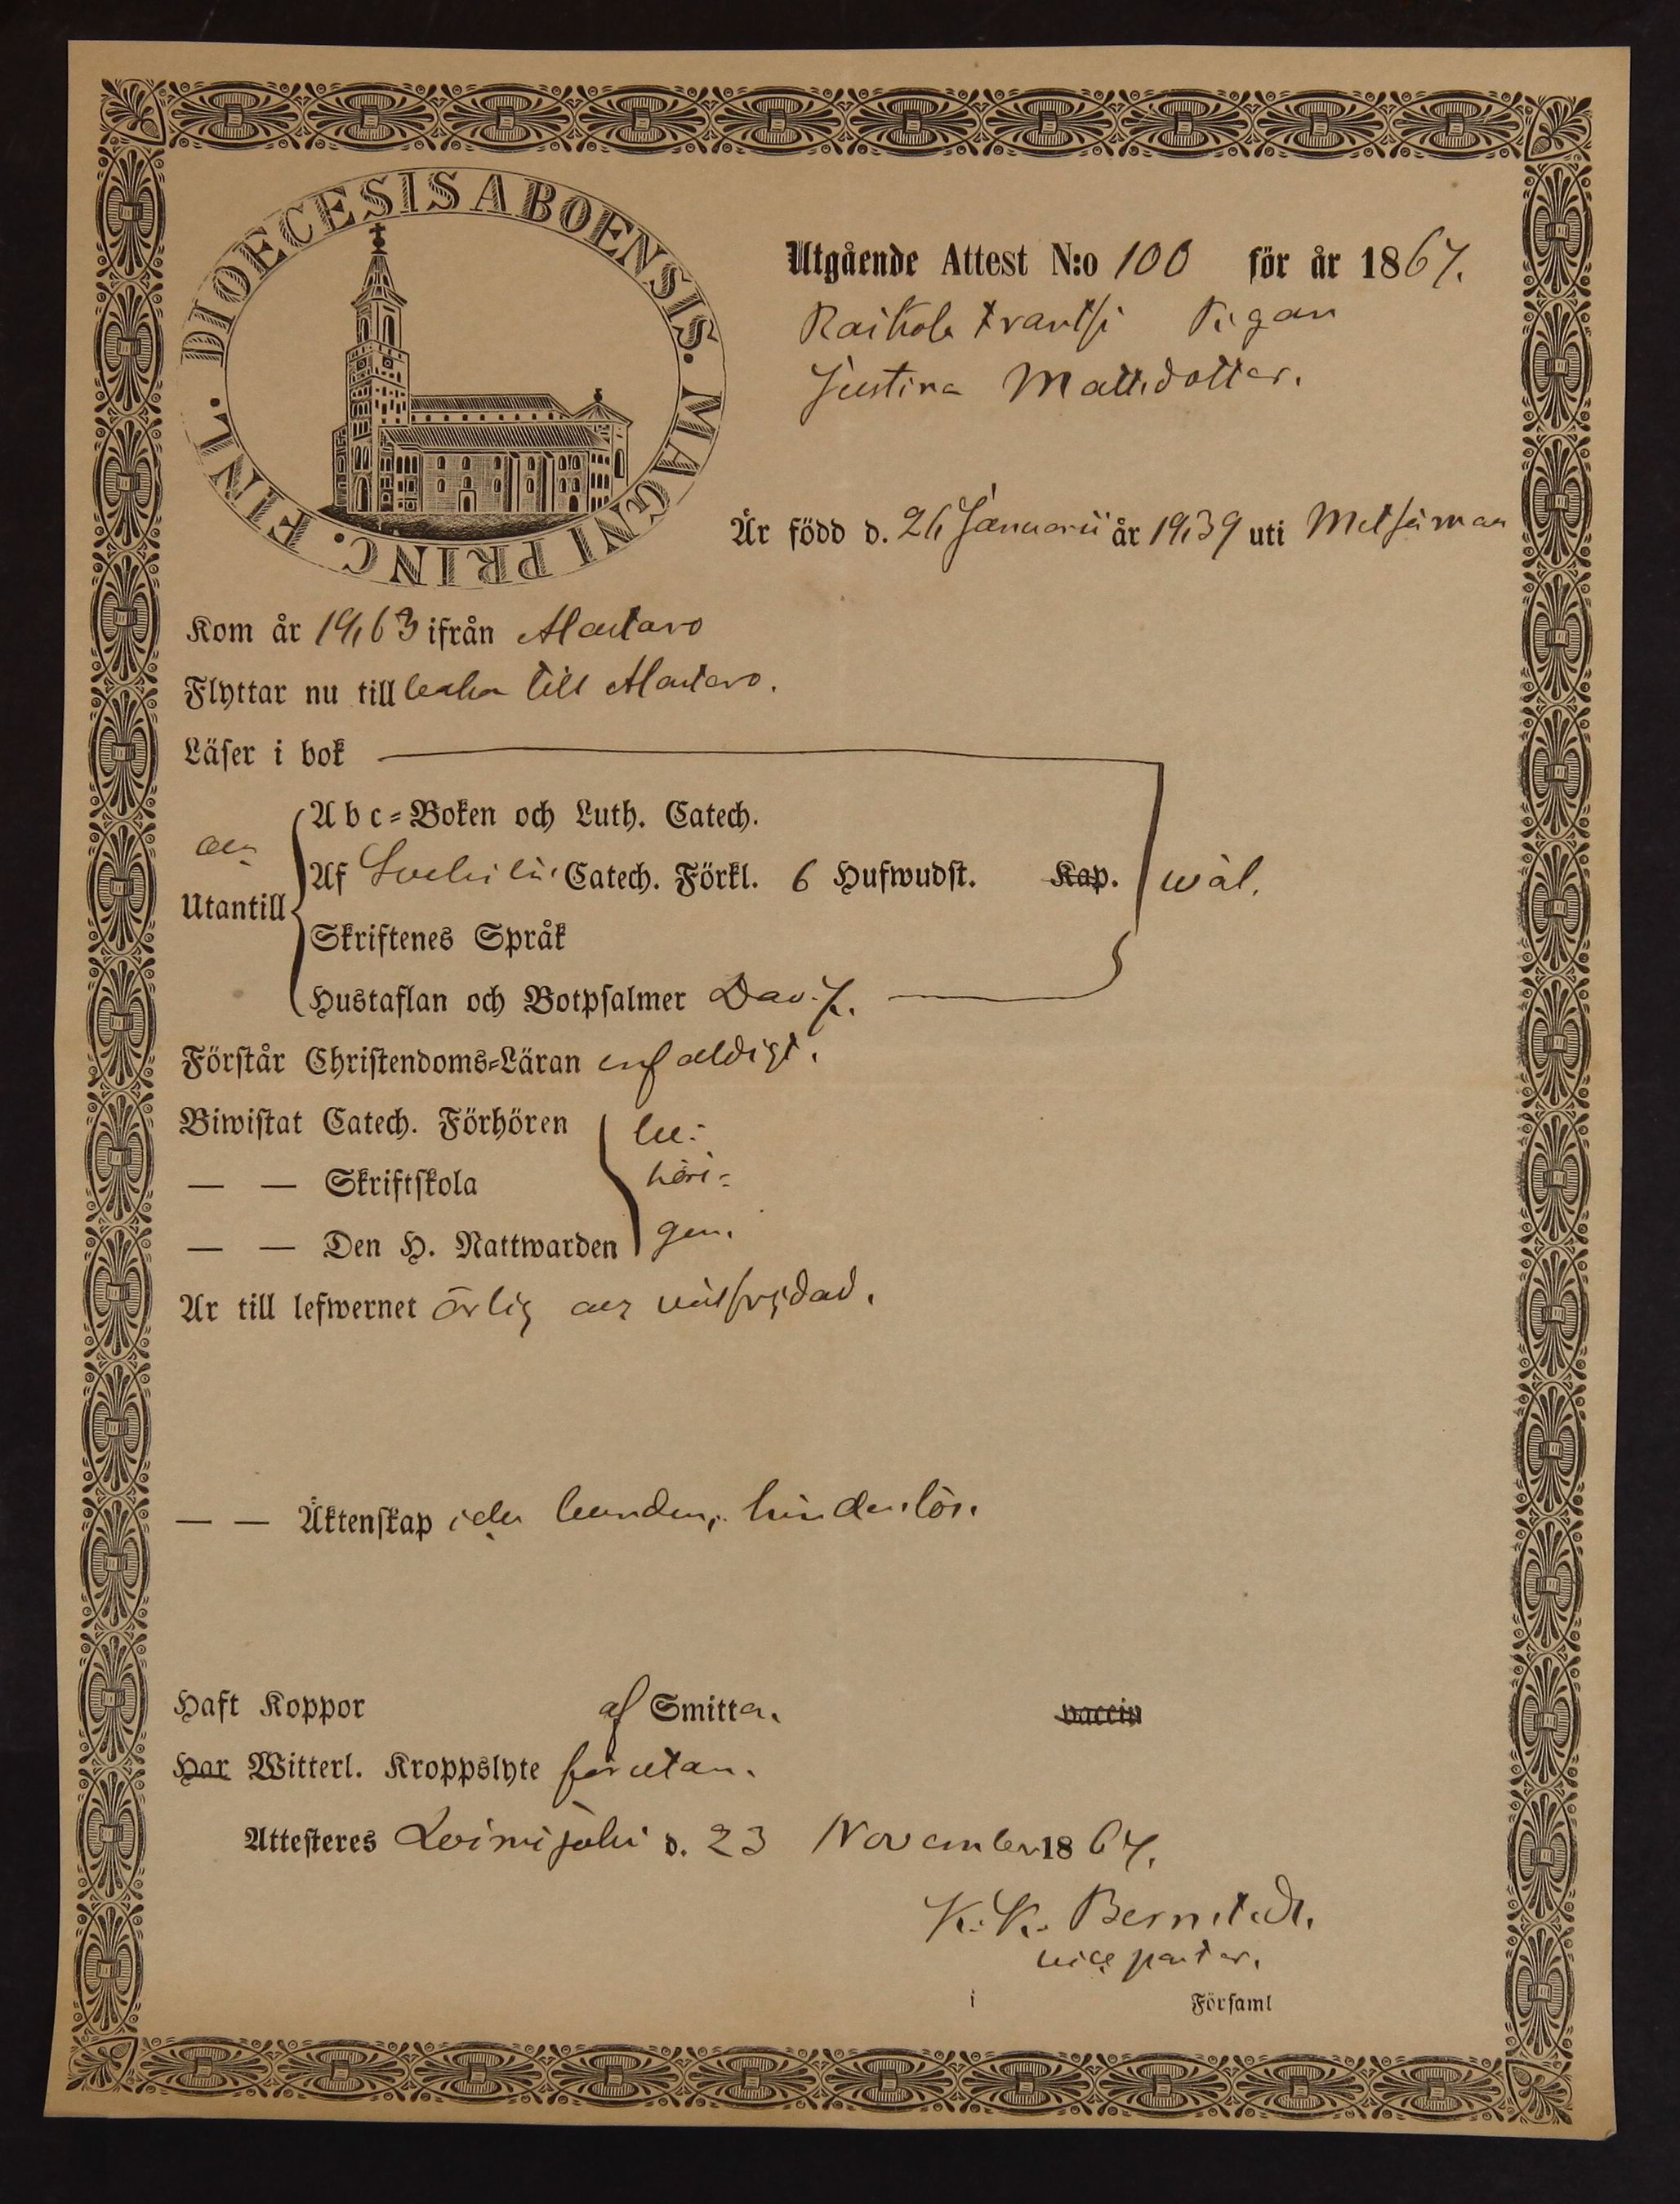 DIOECESIS ABOENSIS. MAGNI PRINC. FINL.
Utgående Attest N:o 100 för år 1867.
Raikola Frantsi Pigan
Justina Mattsdotter.
Är född d. 26 Januarii år 1839 uti Metsämaa
Kom år 1863 ifrån Alastaro
Flyttar nu till baka till Alastaro.
Läser i bok
Abc-Boken och Luth. Catech.
och
Af Svebilii Catech. Förkl. 6 Hufwudst. Kap. wäl.
Utantill
Skriftenes Språk
Hustaflan och Botpsalmer Dav. 7.
Förstår Christendoms-Läran enfaldigt.
Biwistat Catech. Förhören be-
— — Skriftskola höri-
— — Den H. Nattwarden gen.
Är till lefwernet ärlig och välfrejdad.
— — Äktenskap icke bunden, hinderslös.
Haft Koppor af Smitta. vaccin
Har Witterl. Kroppslyte förutan.
Attesteres Loimijoki d. 23 November 1867.
K. K. Bernstedt.
vice pastor.
i Församl